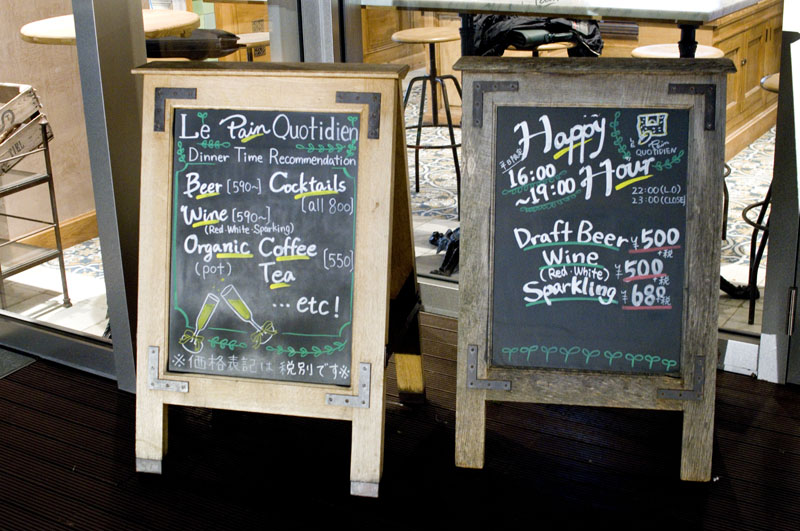 Le Pain Quotidien
Dinner Time Recommendation
Beer [590~] Cocktails
[all 800]
Wine [590~]
(Red・White・Sparkling)
Organic Coffee
(pot) Tea [550]
... etc!
※価格表記は税別です※
Happy
Hour
平日限定
16:00
~19:00
Le Pain
QUOTIDIEN
22:00(L.O)
23:00(CLOSE)
Draft Beer ¥500
+税
Wine
(Red・White) ¥500
+税
Sparkling ¥689